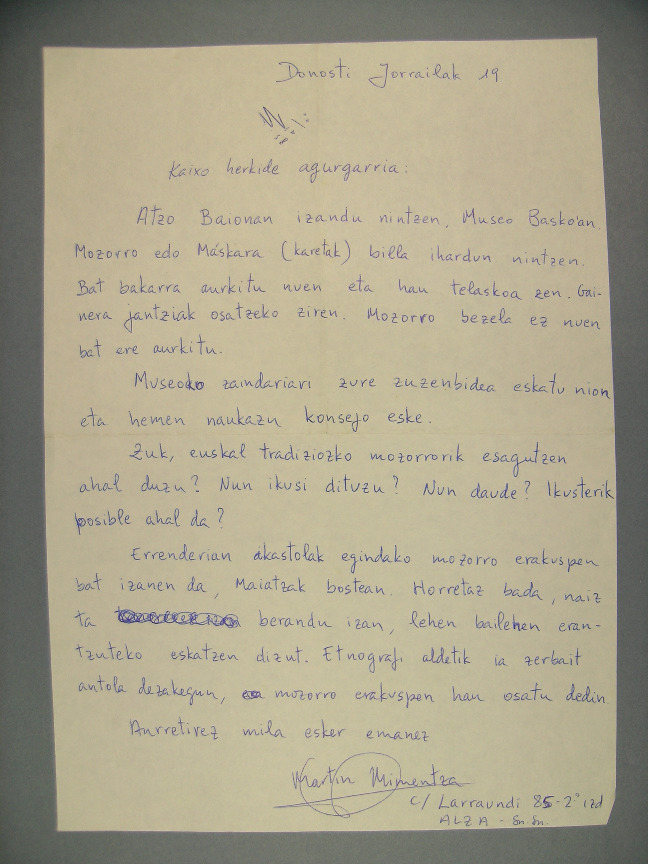 Donosti Jorrailak 19
Kaixo herkide agurgarria:
Atzo Baionan izandu nintzen, Museo Basko'an.
Mozorro edo Máskara (karetak) billa ihardun nintzen.
Bat bakarra aurkitu nuen eta hau telaskoa zen. Gai-
nera jantziak osatzeko ziren. Mozorro bezela ez nuen
bat ere aurkitu.
Museoko zaindariari zure zuzenbidea eskatu nion
eta hemen naukazu konsejo eske.
Zuk, euskal tradiziozko mozorrorik esagutzen
ahal duzu? Nun ikusi dituzu? Nun daude? Ikusterik
posible ahal da?
Errenderian ikastolak egindako mozorro erakuspen
bat izanen da, Maiatzak bostean. Horretaz bada, naiz
ta berandu izan, lehen bailehen eran-
tzuteko eskatzen dizut. Etnografi aldetik ia zerbait
antola dezakegun, mozorro erakuspen hau osatu dedin
Aurretivez mila esker emanez
Martin Mimentza
C/ Larraundi 85-2º izd
ALZA - Sn. Sn.